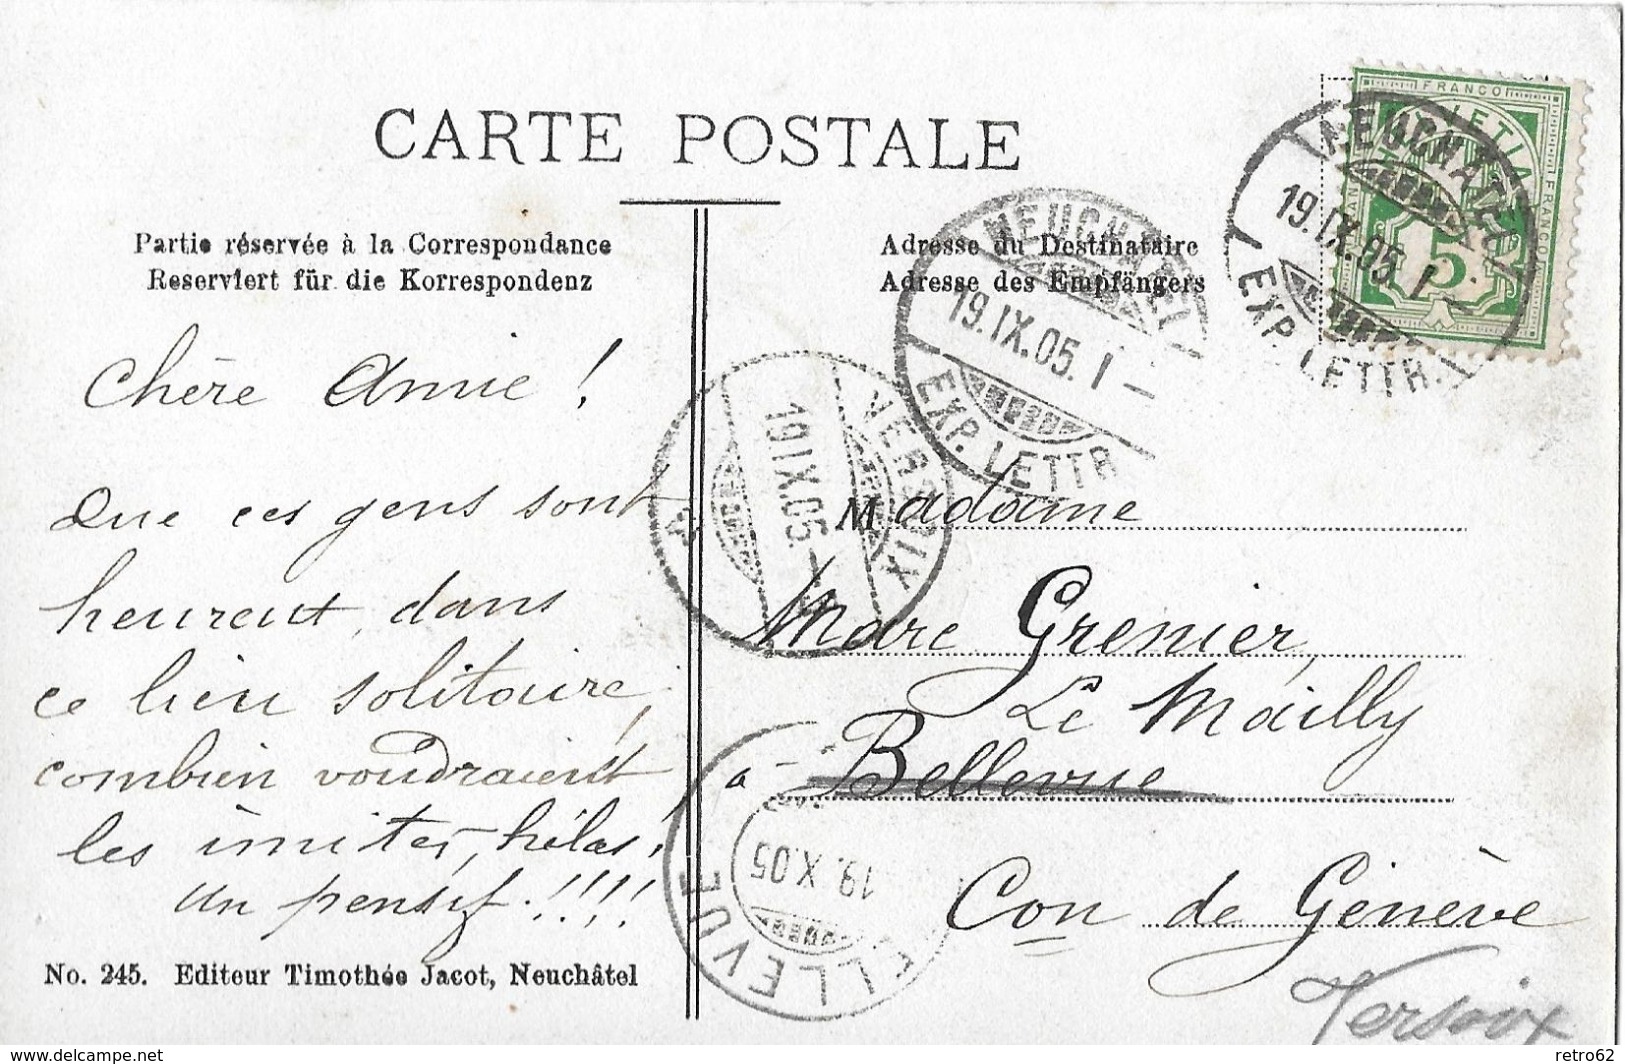 CARTE POSTALE
Partie réservée à la Correspondance
Reserviert für die Korrespondenz
Adresse du Destinataire
Adresse des Empfängers
FRANCO
FRANCO
5
NEUCHATEL
19.IX.05. I –
EXP. LETTR.
NEUCHATEL
19.IX.05. I –
EXP. LETTR.
VERSOIX
19 IX.05.
Chère Amie !
Que ces gens sont
heureux, dans
ce lieu solitaire,
combien voudraient
les imiter, hélas !
un pensif. !!!!
Madame
Marc Grenier,
Le Mailly
à – Bellevue
Con de Genève
Versoix
BELLEVUE
19. X.05
No. 245. Editeur Timothée Jacot, Neuchâtel
http://www.delcampe.net
retro62